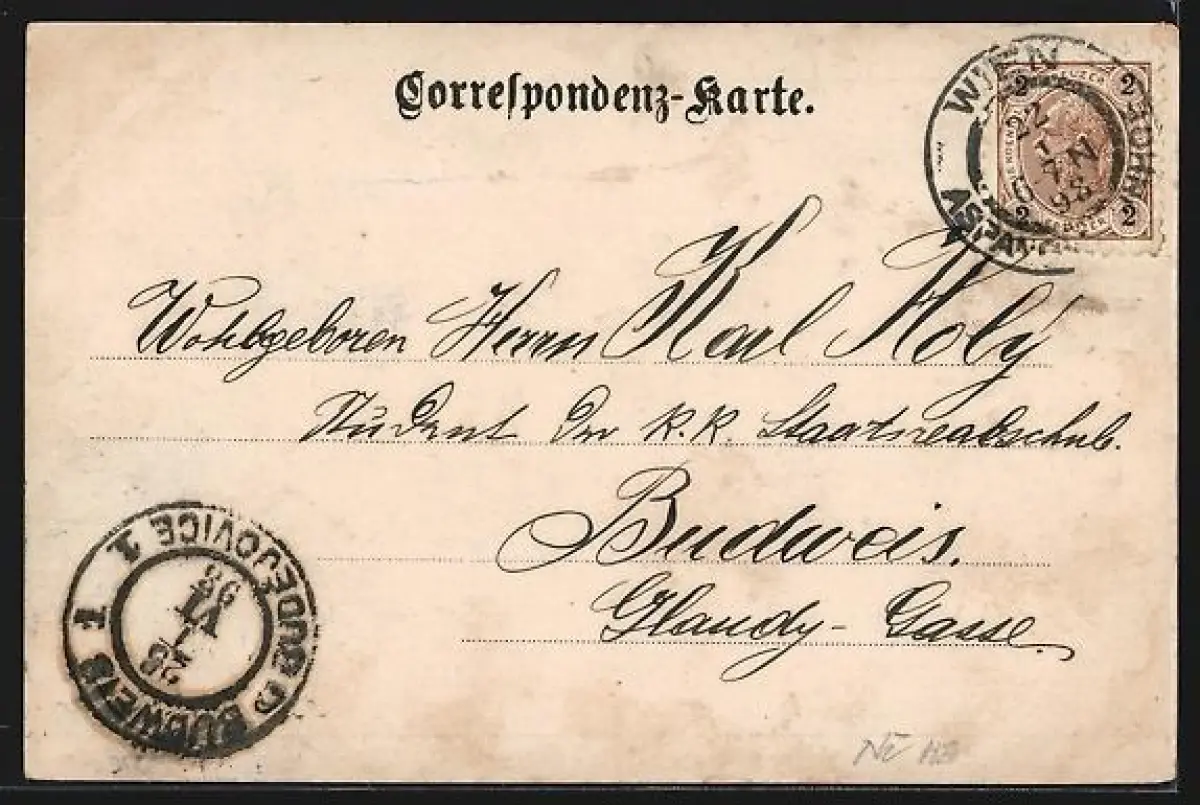 Correspondenz-Karte.
WIEN
ASPANG
22
98
2 2
2 2
Wohlgeboren Herrn Karl Holý
Student der k.k. Staatsrealschul.
Budweis.
Glandy-Gasse.
BUDWEIS 1 BUDĚJOVICE 1
VI
98